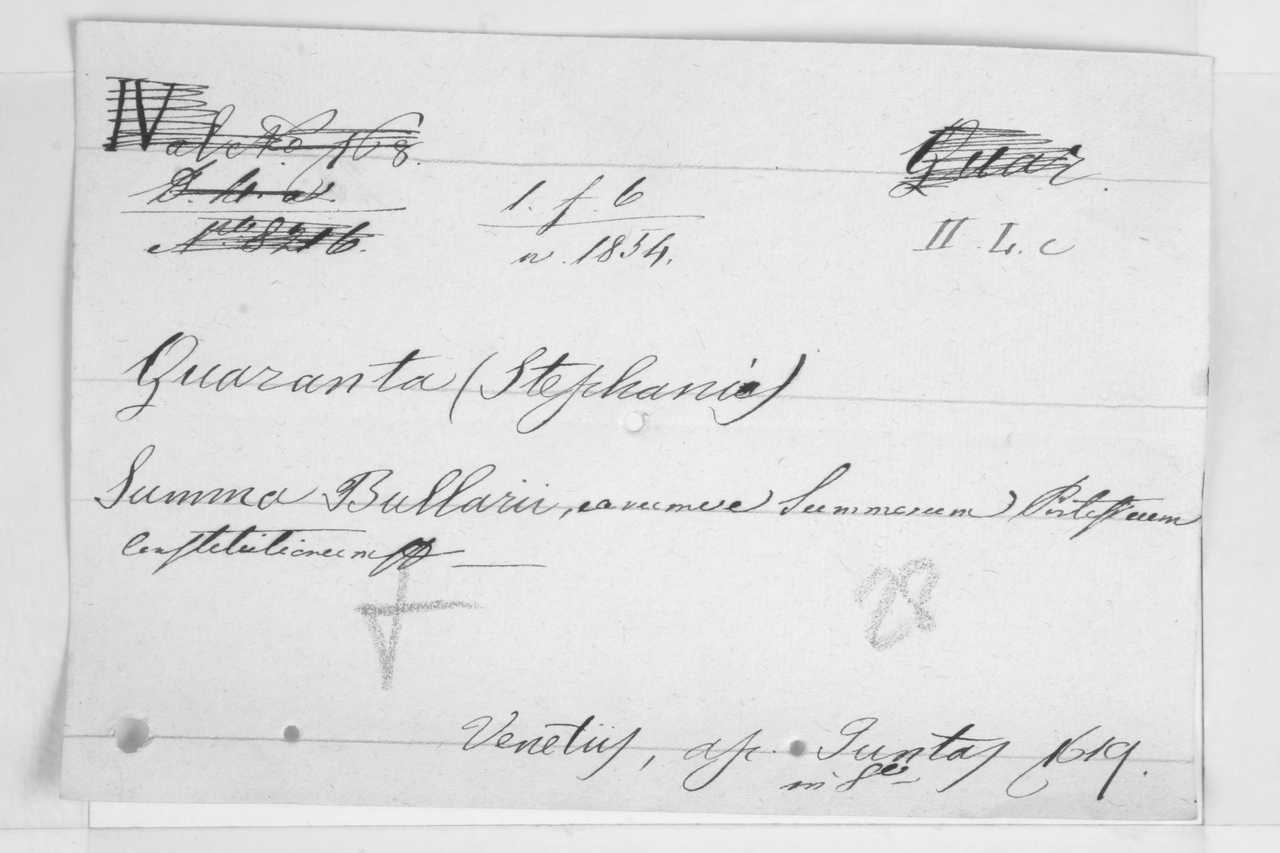 Quar.
1. f. 6
n. 1854.
II. L. c
Quaranta (Stephani)
Summa Bullarii, earumve Summorum Pontificum
Constitutionum
28
Venetiis, ap. Juntas 1619.
in 8º